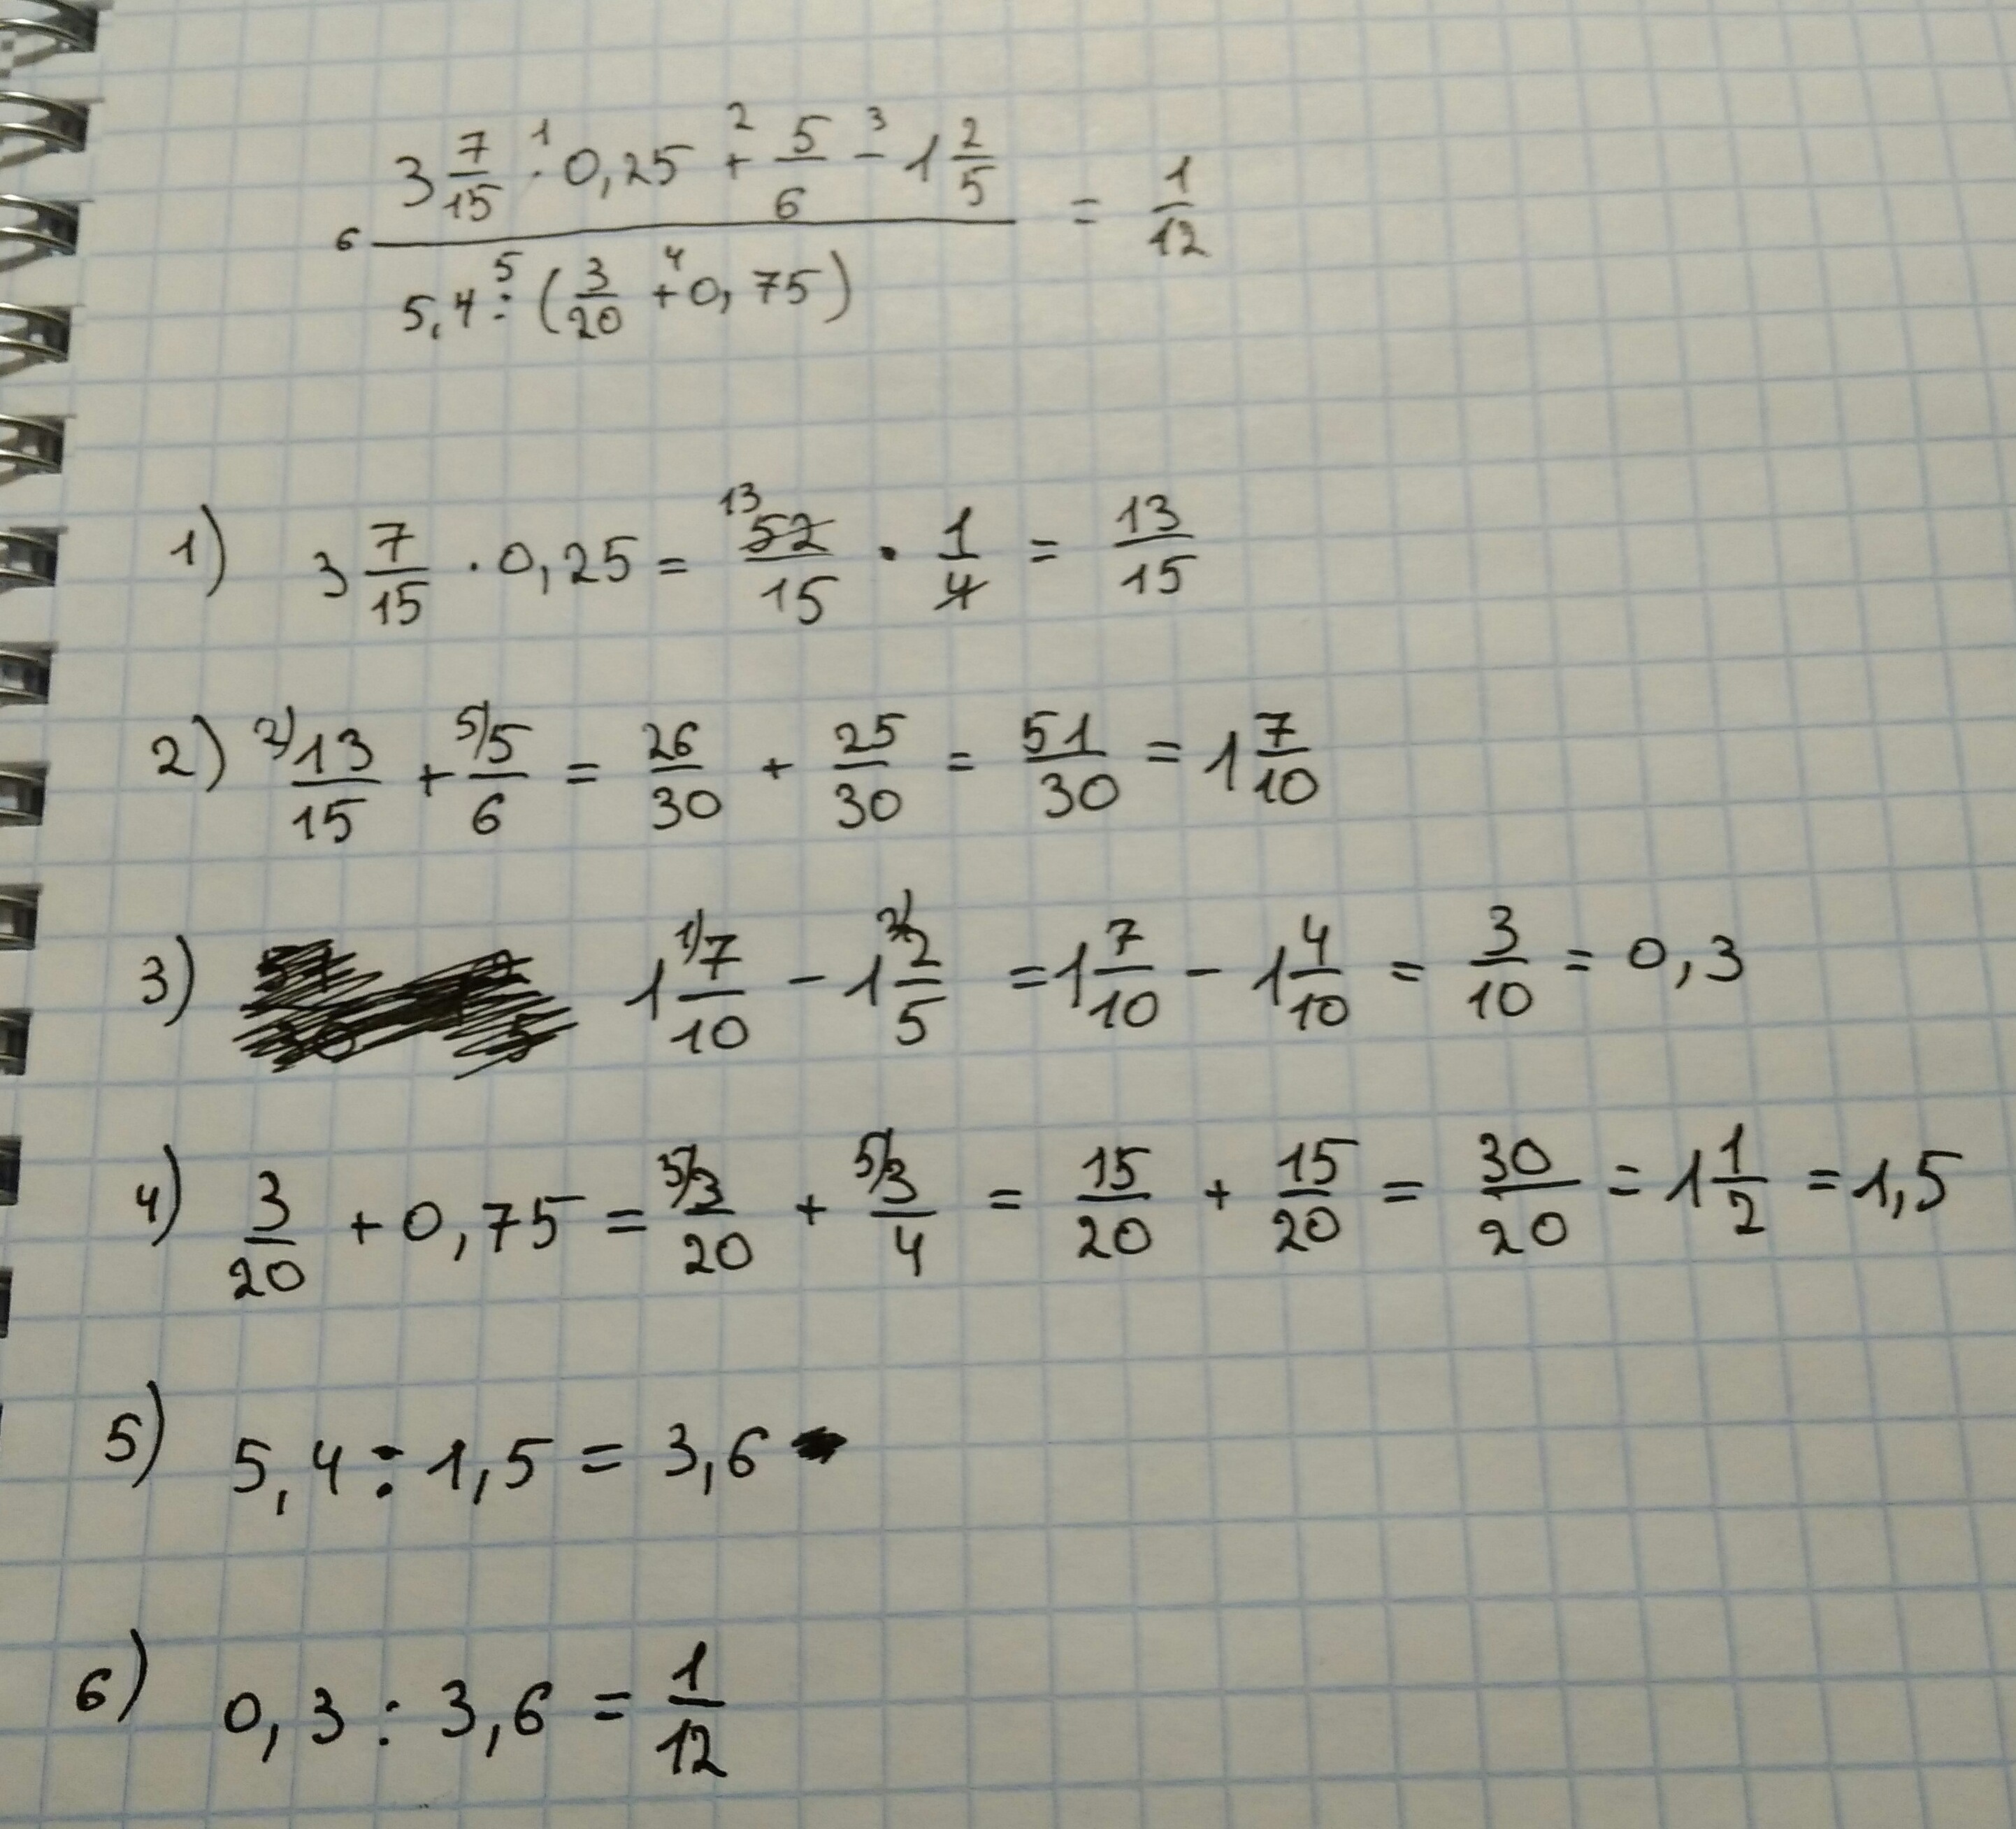 3 7/15 ·¹ 0,25 +² 5/6 -³ 1 2/5
6 ———————— = 1/12
5,4 :⁵ (3/20 +⁴ 0,75)
1) 3 7/15 · 0,25 = ¹³52/15 · 1/4 = 13/15
2) ²⁾13/15 + ⁵⁾5/6 = 26/30 + 25/30 = 51/30 = 1 7/10
3) 1 ¹⁾7/10 - 1 ²⁾2/5 = 1 7/10 - 1 4/10 = 3/10 = 0,3
4) 3/20 + 0,75 = ⁵⁾3/20 + ⁵⁾3/4 = 15/20 + 15/20 = 30/20 = 1 1/2 = 1,5
5) 5,4 : 1,5 = 3,6
6) 0,3 : 3,6 = 1/12